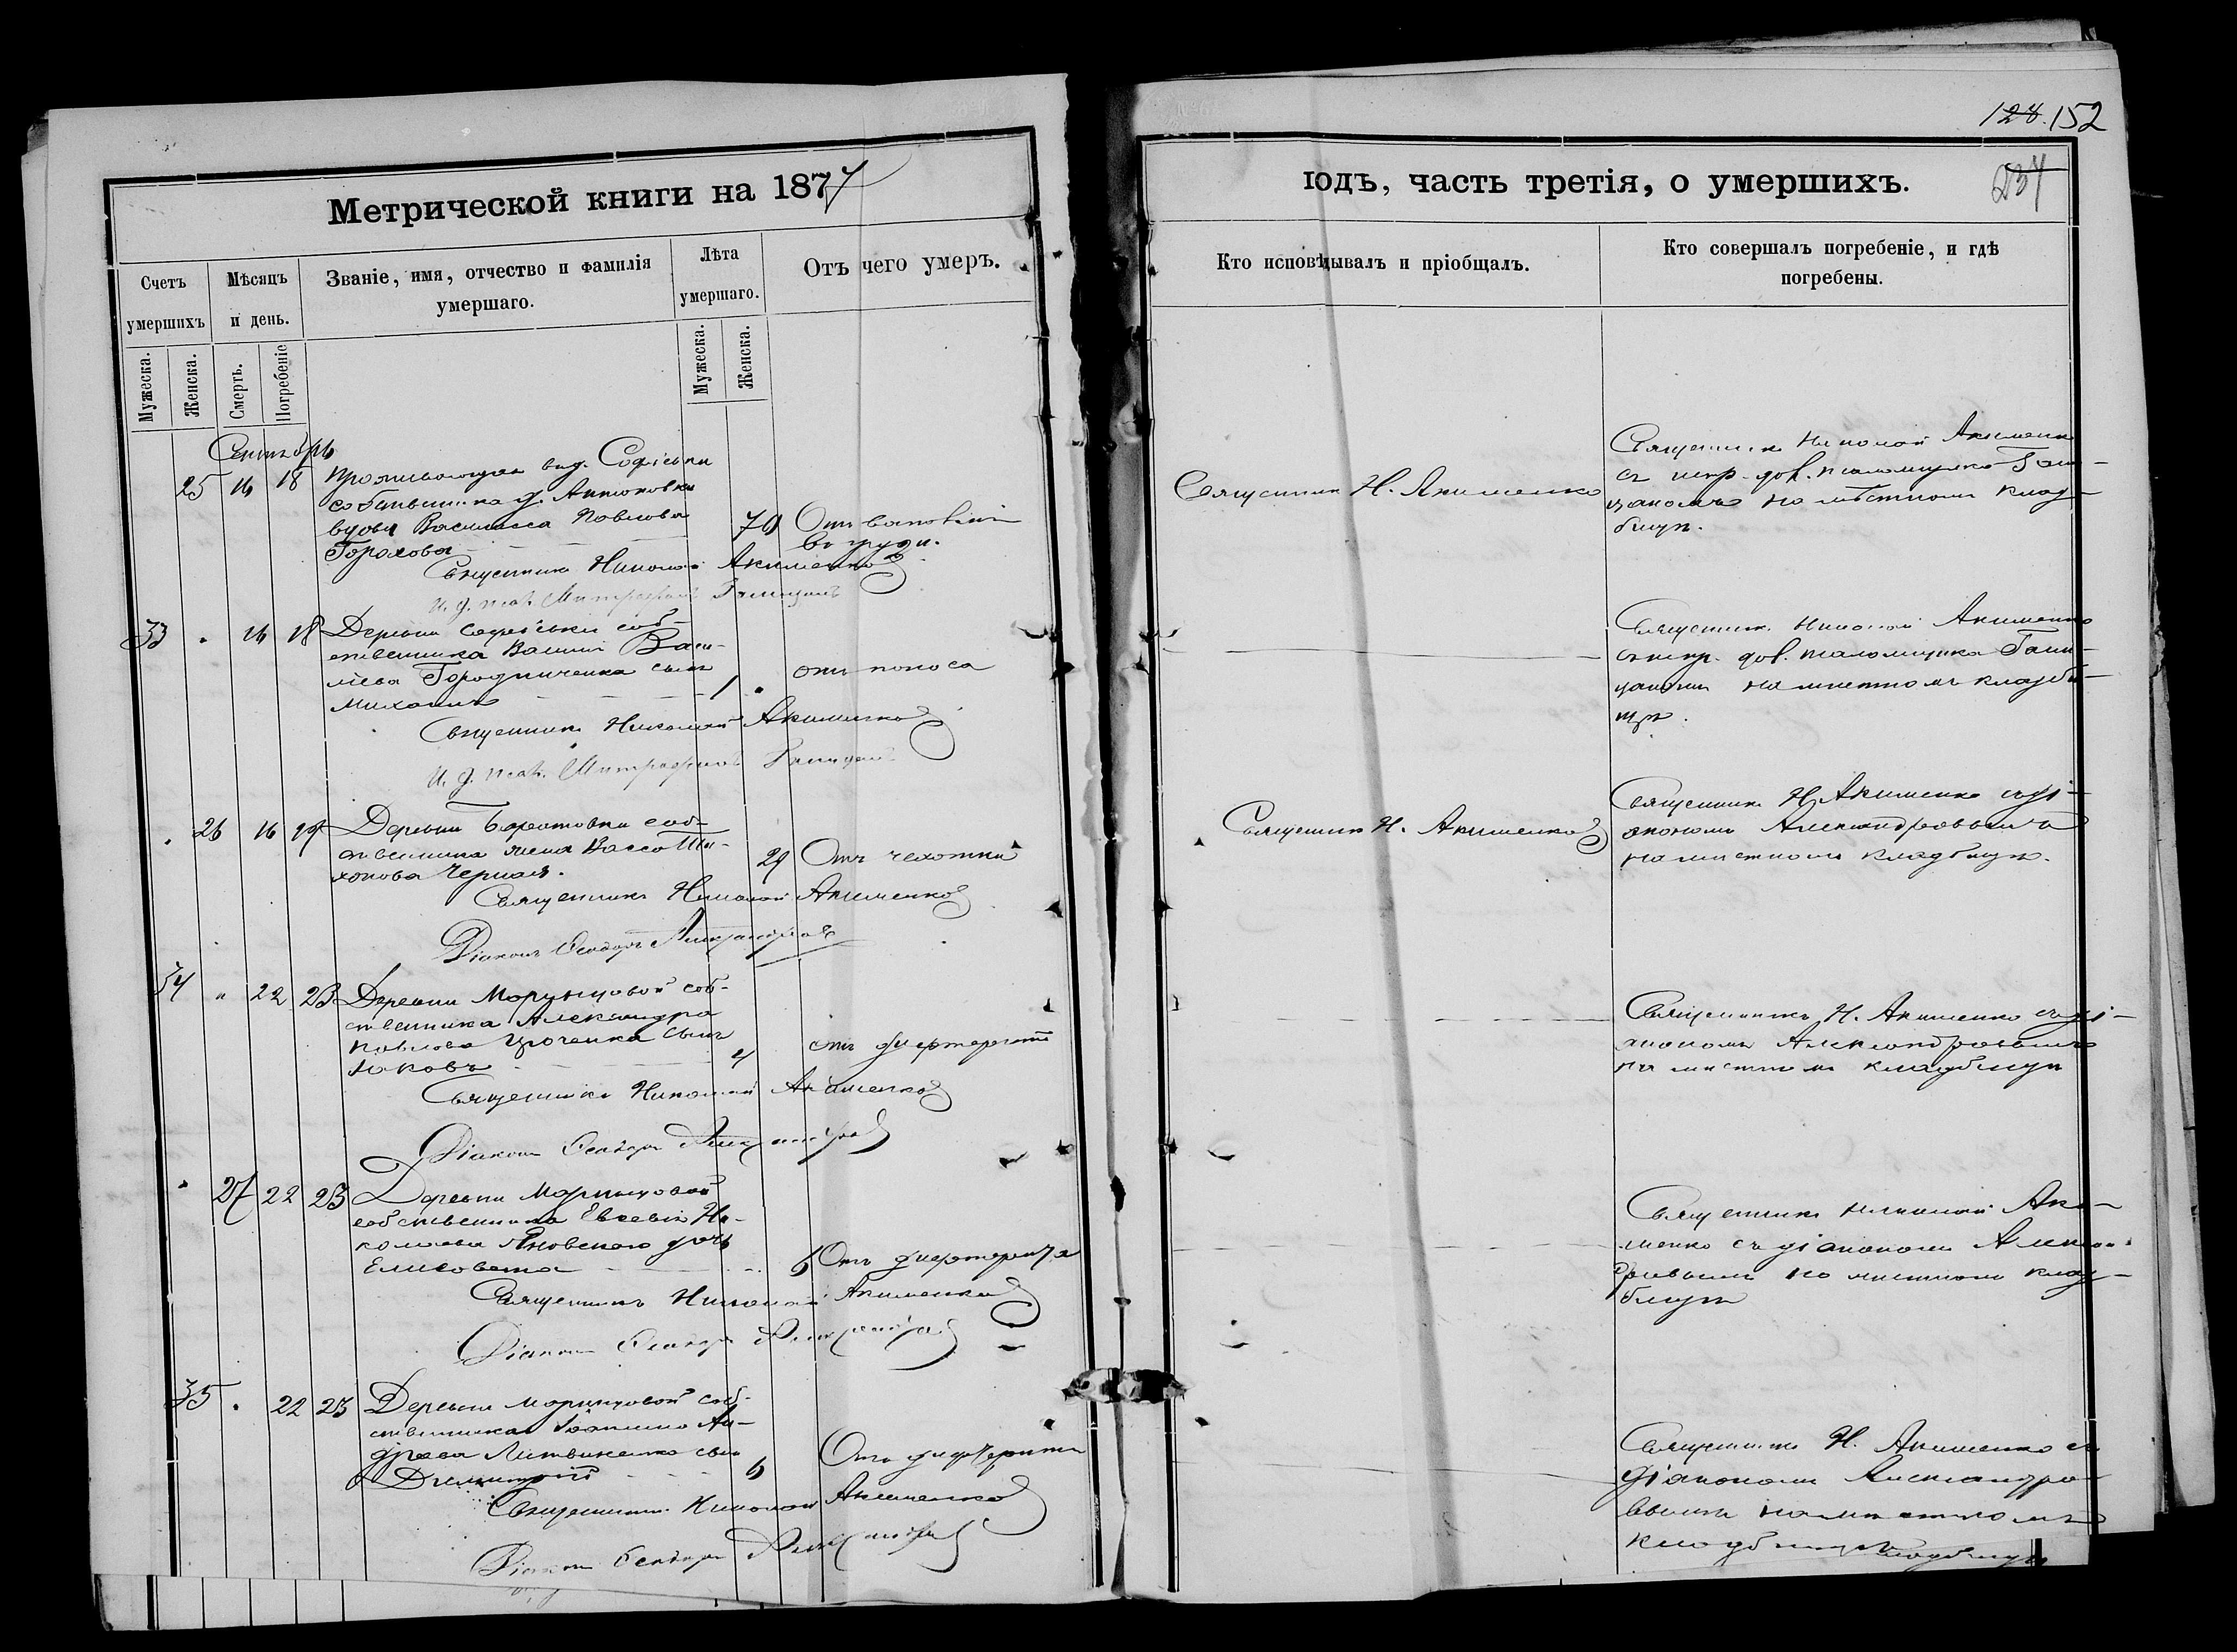 128. 152
237
Метрической книги на 1877
годъ, часть третія, о умершихъ.
Счетъ умершихъ
Мѣсяцъ и день.
Званіе, имя, отчество и фамилія умершаго.
Лѣта умершаго.
Отъ чего умеръ.
Кто исповѣдывалъ и пріобщалъ.
Кто совершалъ погребеніе, и гдѣ погребены.
Мужеска.
Женска.
Смерть.
Погребеніе
Мужеска.
Женска.
Сентябрь
25 16 18
Проживающая в д. Софіевки
собственника д. Антоновки
вдова Василисса Павлова
Горохова
70
въ груди.
Священникъ Николай Акименко
Священникъ Н. Акименко
Священникъ Николай Акименко
с испр. дол. псаломщика Гали-
цкимъ на мѣстномъ клад-
бищѣ.
33 " 16 18
Деревни Софіевки соб-
ственника Васи-
лева Городниченка сынъ
Михаилъ
1 "
отъ поноса
Священникъ Николай Акименко
Священникъ Николай Акименко
с испр. дол. псаломщика
на мѣстномъ кладби-
щѣ.
" 26 16 19
Деревни соб-
ственника жена Васса Ти-
хонова Черная.
29
Отъ чахотки
Священникъ Николай Акименко
Діаконъ Ѳеодоръ Александровъ
Священникъ Н. Акименко
Священникъ Н. Акименко съ ді-
акономъ Александровымъ
на мѣстномъ кладбищѣ.
34 " 22 23
Деревни Моринцовой соб-
ственника Александра
Павлова сынъ
Іаковъ
4
отъ дифтерита
Священникъ Николай Акименко
Діаконъ Ѳеодоръ Александровъ
Священникъ Н. Акименко съ ді-
акономъ Александровымъ
на мѣстномъ кладбищѣ
" 27 22 23
Деревни Моринцовой
собственника Евсевія Ни-
колаева Яновскаго дочь
Елисавета
6
Отъ дифтерита
Священникъ Николай Акименко
Діаконъ Ѳеодоръ Александровъ
Священникъ Николай Аки-
менко съ діакономъ Алексан-
дровымъ на мѣстномъ клад-
бищѣ
35 " 22 23
Деревни Моринцовой соб-
ственника Іоанна Ан-
дреева Литвиненка сынъ
Димитрій
6
Отъ дифтерита
Священникъ Николай Акименко
Діаконъ Ѳеодоръ Александровъ
Священникъ Н. Акименко съ
діакономъ Александро-
вымъ на мѣстномъ
кладбищѣ